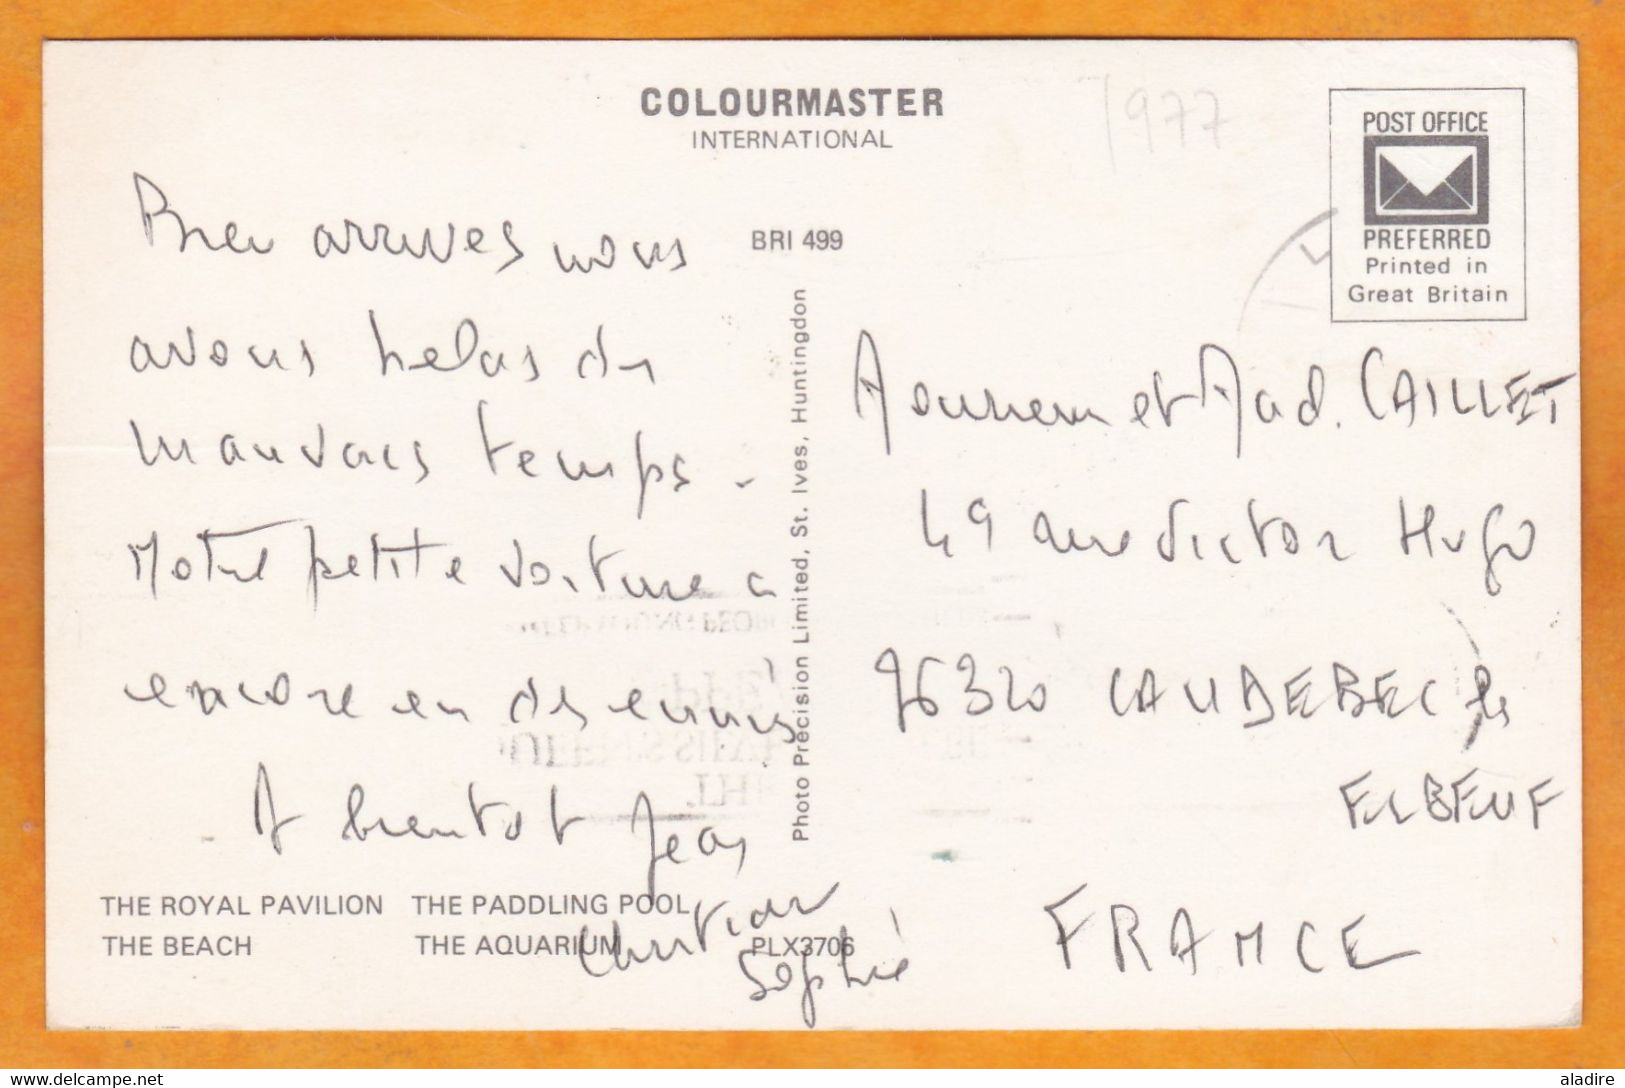 COLOURMASTER
INTERNATIONAL
1977
POST OFFICE
PREFERRED
Printed in
Great Britain
BRI 499
Bien arrives nous
avons helas du
mauvais temps.
Notre petite voiture a
encore eu des ennuis
A bientot Jean
Christian
Sophie
Photo Precision Limited, St. Ives, Huntingdon
Monsieur et Mad. CAILLET
49 rue Victor Hugo
76320 CAUDEBEC les
ELBEUF
FRANCE
THE ROYAL PAVILION THE PADDLING POOL
THE BEACH THE AQUARIUM PLX3706
delcampe.net
aladire